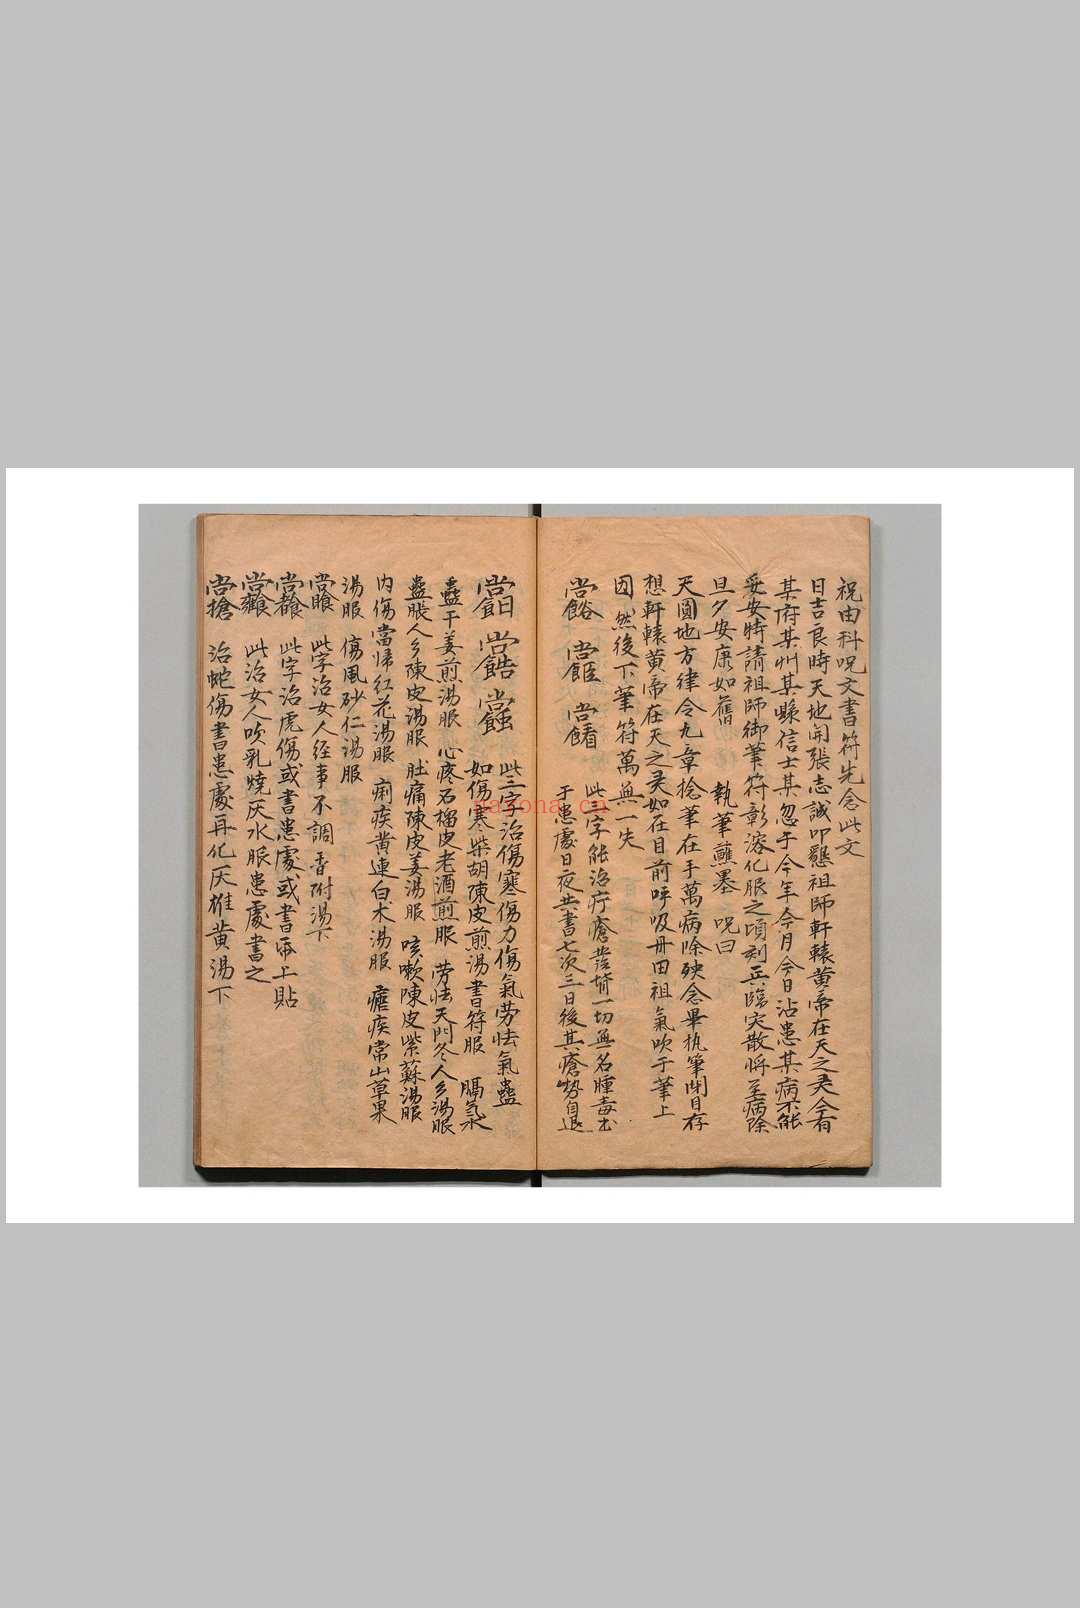 祝由科呪文書符先念此文
日吉良時天地開張志誠叩懇祖師軒轅黄帝在天之灵今有
某府某州某縣信士某忽于今年今月今日沾患某病不能
妥安特請祖師御筆符彰溶化服之頃刻兵臨灾散將至病除
旦夕安康如舊 執筆蘸墨 呪曰
天圓地方律令九章捻筆在手萬病除殃念畢执筆閉目存
想軒轅黄帝在天之灵如在目前呼吸丹田祖氣吹于筆上
因然後下筆符萬無一失
此三字能治疔瘡發背一切無名腫毒書
于患處日夜共書七次三日後其瘡勢自退
此三字治傷寒傷力傷氣劳怯氣蠱
如傷寒柴胡陳皮煎湯書符服 膈氣水
蠱干姜煎湯服 心疼石榴皮老酒煎服 劳怯天門冬人乡湯服
蠱脹人乡陳皮湯服 肚痛陳皮姜湯服 咳嗽陳皮紫蘇湯服
内傷當归红花湯服 痢疾黄連白术湯服 瘧疾常山草果
湯服 傷風砂仁湯服
此字治女人经事不調香附湯下
此字治虎傷或書患處或書帋上貼
此治女人吹乳燒灰水服患處書之
治蛇傷書患處再化灰雄黄湯下
nayona.cn